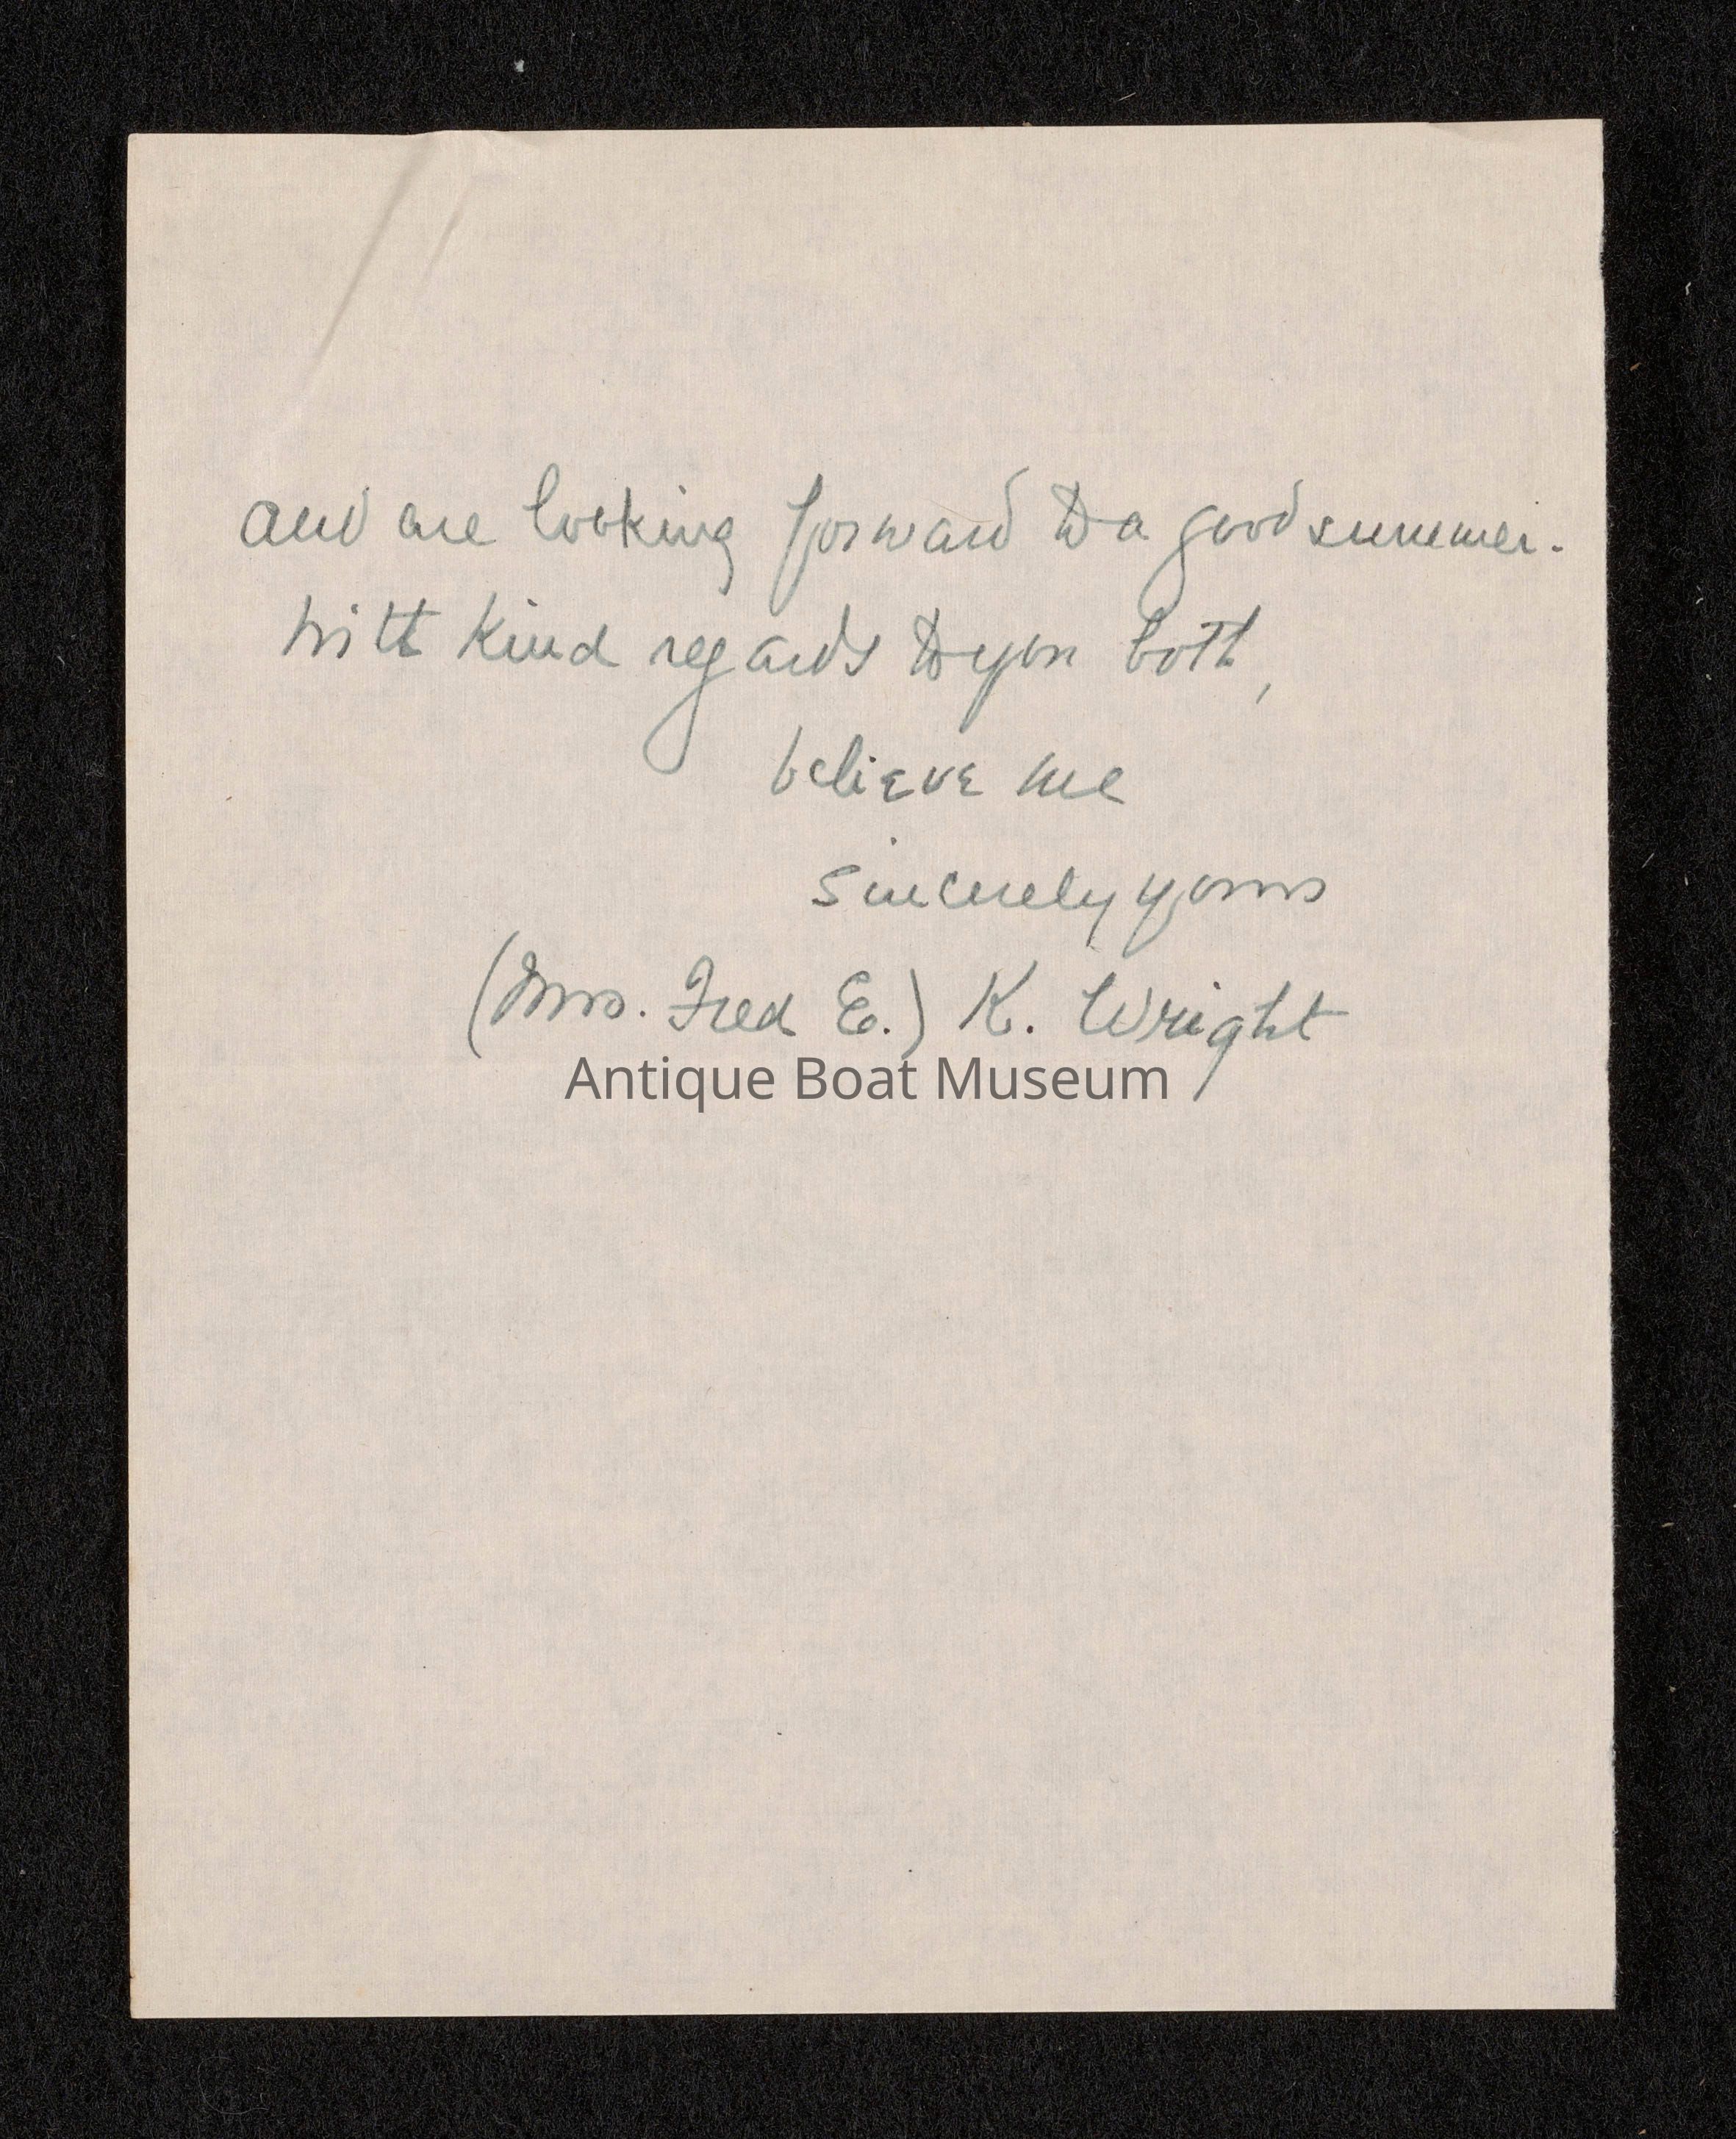 and are looking forward to a good summer.
With kind regards to you both,
believe me
sincerely yours
(Mrs. Fred E.) K. Wright
Antique Boat Museum